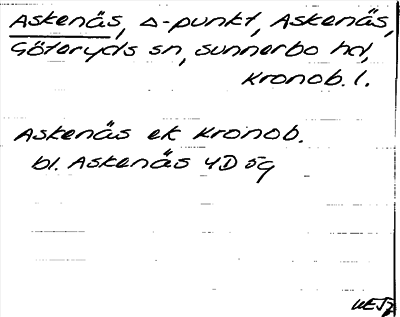 Askenäs, Δ-punkt, Askenäs,
Göteryds sn, Sunnerbo hd,
Kronob. l.
Askenäs ek Kronob.
bl. Askenäs 4D 5g